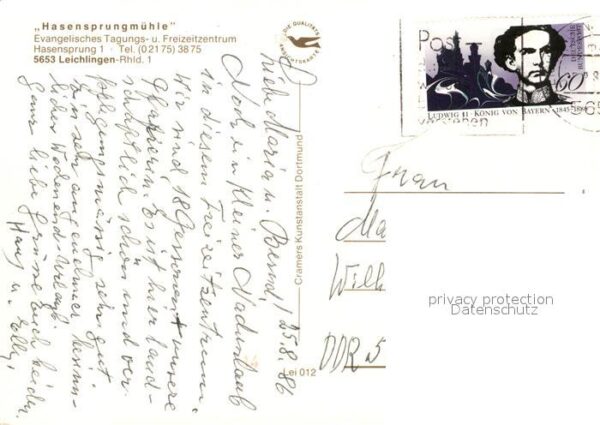 „Hasensprungmühle"
Evangelisches Tagungs- u. Freizeitzentrum
Hasensprung 1 · Tel. (02175) 3875
5653 Leichlingen-Rhld. 1
DIE QUALITÄTS
ANSICHTSKARTE
Cramers Kunstanstalt Dortmund
Lei 012
Post
60
LUDWIG II · KÖNIG VON BAYERN · 1845-1886
25.8.86
Liebe Maria u. Bernd!
Noch ein kleiner Nachurlaub
in diesem Freizeitzentrum.
Wir sind 18 Personen unsere
Es ist hier land-
schaftlich schön und ver-
pflegungsmäßig sehr gut
Ein sehr angenehmer
Wochenend-Urlaub.
Ganz liebe Grüße Euch beiden
Hans u. Elly
Frau
Ma
Wilh
DDR 5
privacy protection
Datenschutz